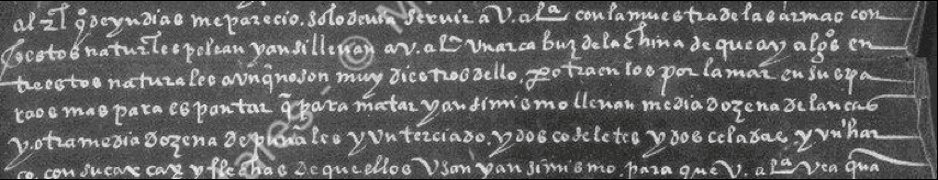 al zl q̃ de yndias me parecio. solo devia servir a V. alª con la muestra de las armas con
q̃ estos naturles pelean y ansi llevan a V. alª Un arcabuz de la china de que ay algos en
tre estos naturales aunq̃ no son muy diestros dello, po traen los por la mar en sus pa
raos mas para espantar q̃ para matar y ansimismo llevan media dozena de lanças
y otra media dozena de puñales y Un terciado. y dos coseletes y dos celadas. y Un har
co. con su carcax y flechas de que ellos Usan y ansimismo. para que V. alª Vea q̃ua